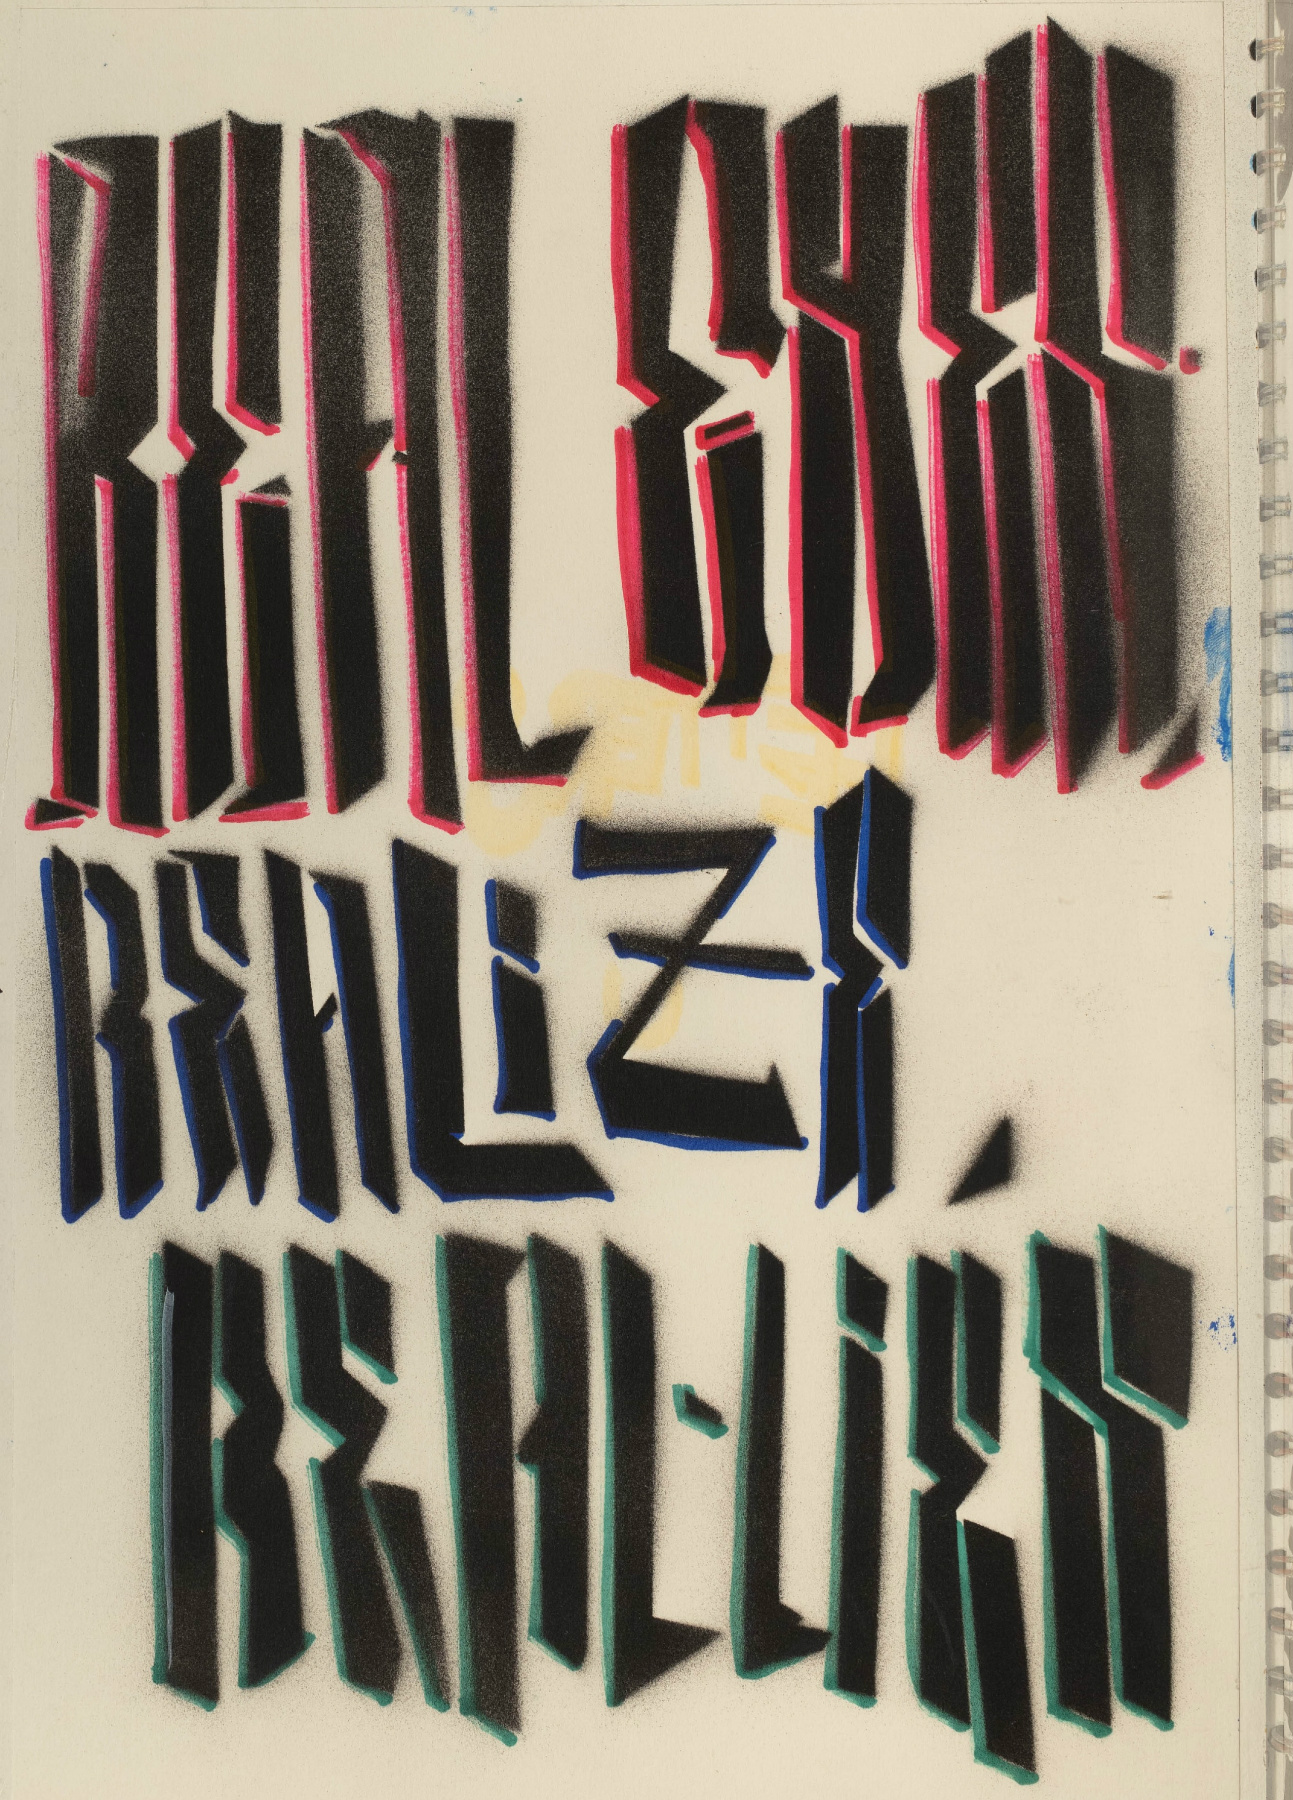 REAL EYES
REALiZE
REAL-LiES